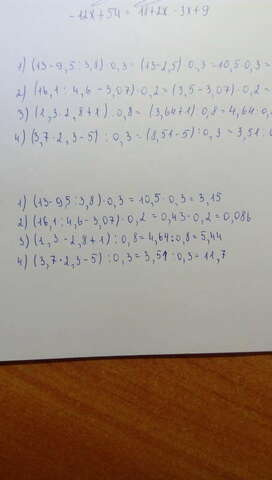 -12x+54 = 18+2x-3x+9
1) (13-9,5:3,8)·0,3=(13-2,5)·0,3=10,5·0,3=
2) (16,1:4,6-3,07)·0,2=(3,5-3,07)·0,2=
3) (1,3·2,8+1):0,8=(3,64+1):0,8=4,64:0,
4) (3,7·2,3-5):0,3=(8,51-5):0,3=3,51:0,
1) (13-9,5:3,8)·0,3=10,5·0,3=3,15
2) (16,1:4,6-3,07)·0,2=0,43·0,2=0,086
3) (1,3·2,8+1):0,8=4,64:0,8=5,44
4) (3,7·2,3-5):0,3=3,51:0,3=11,7